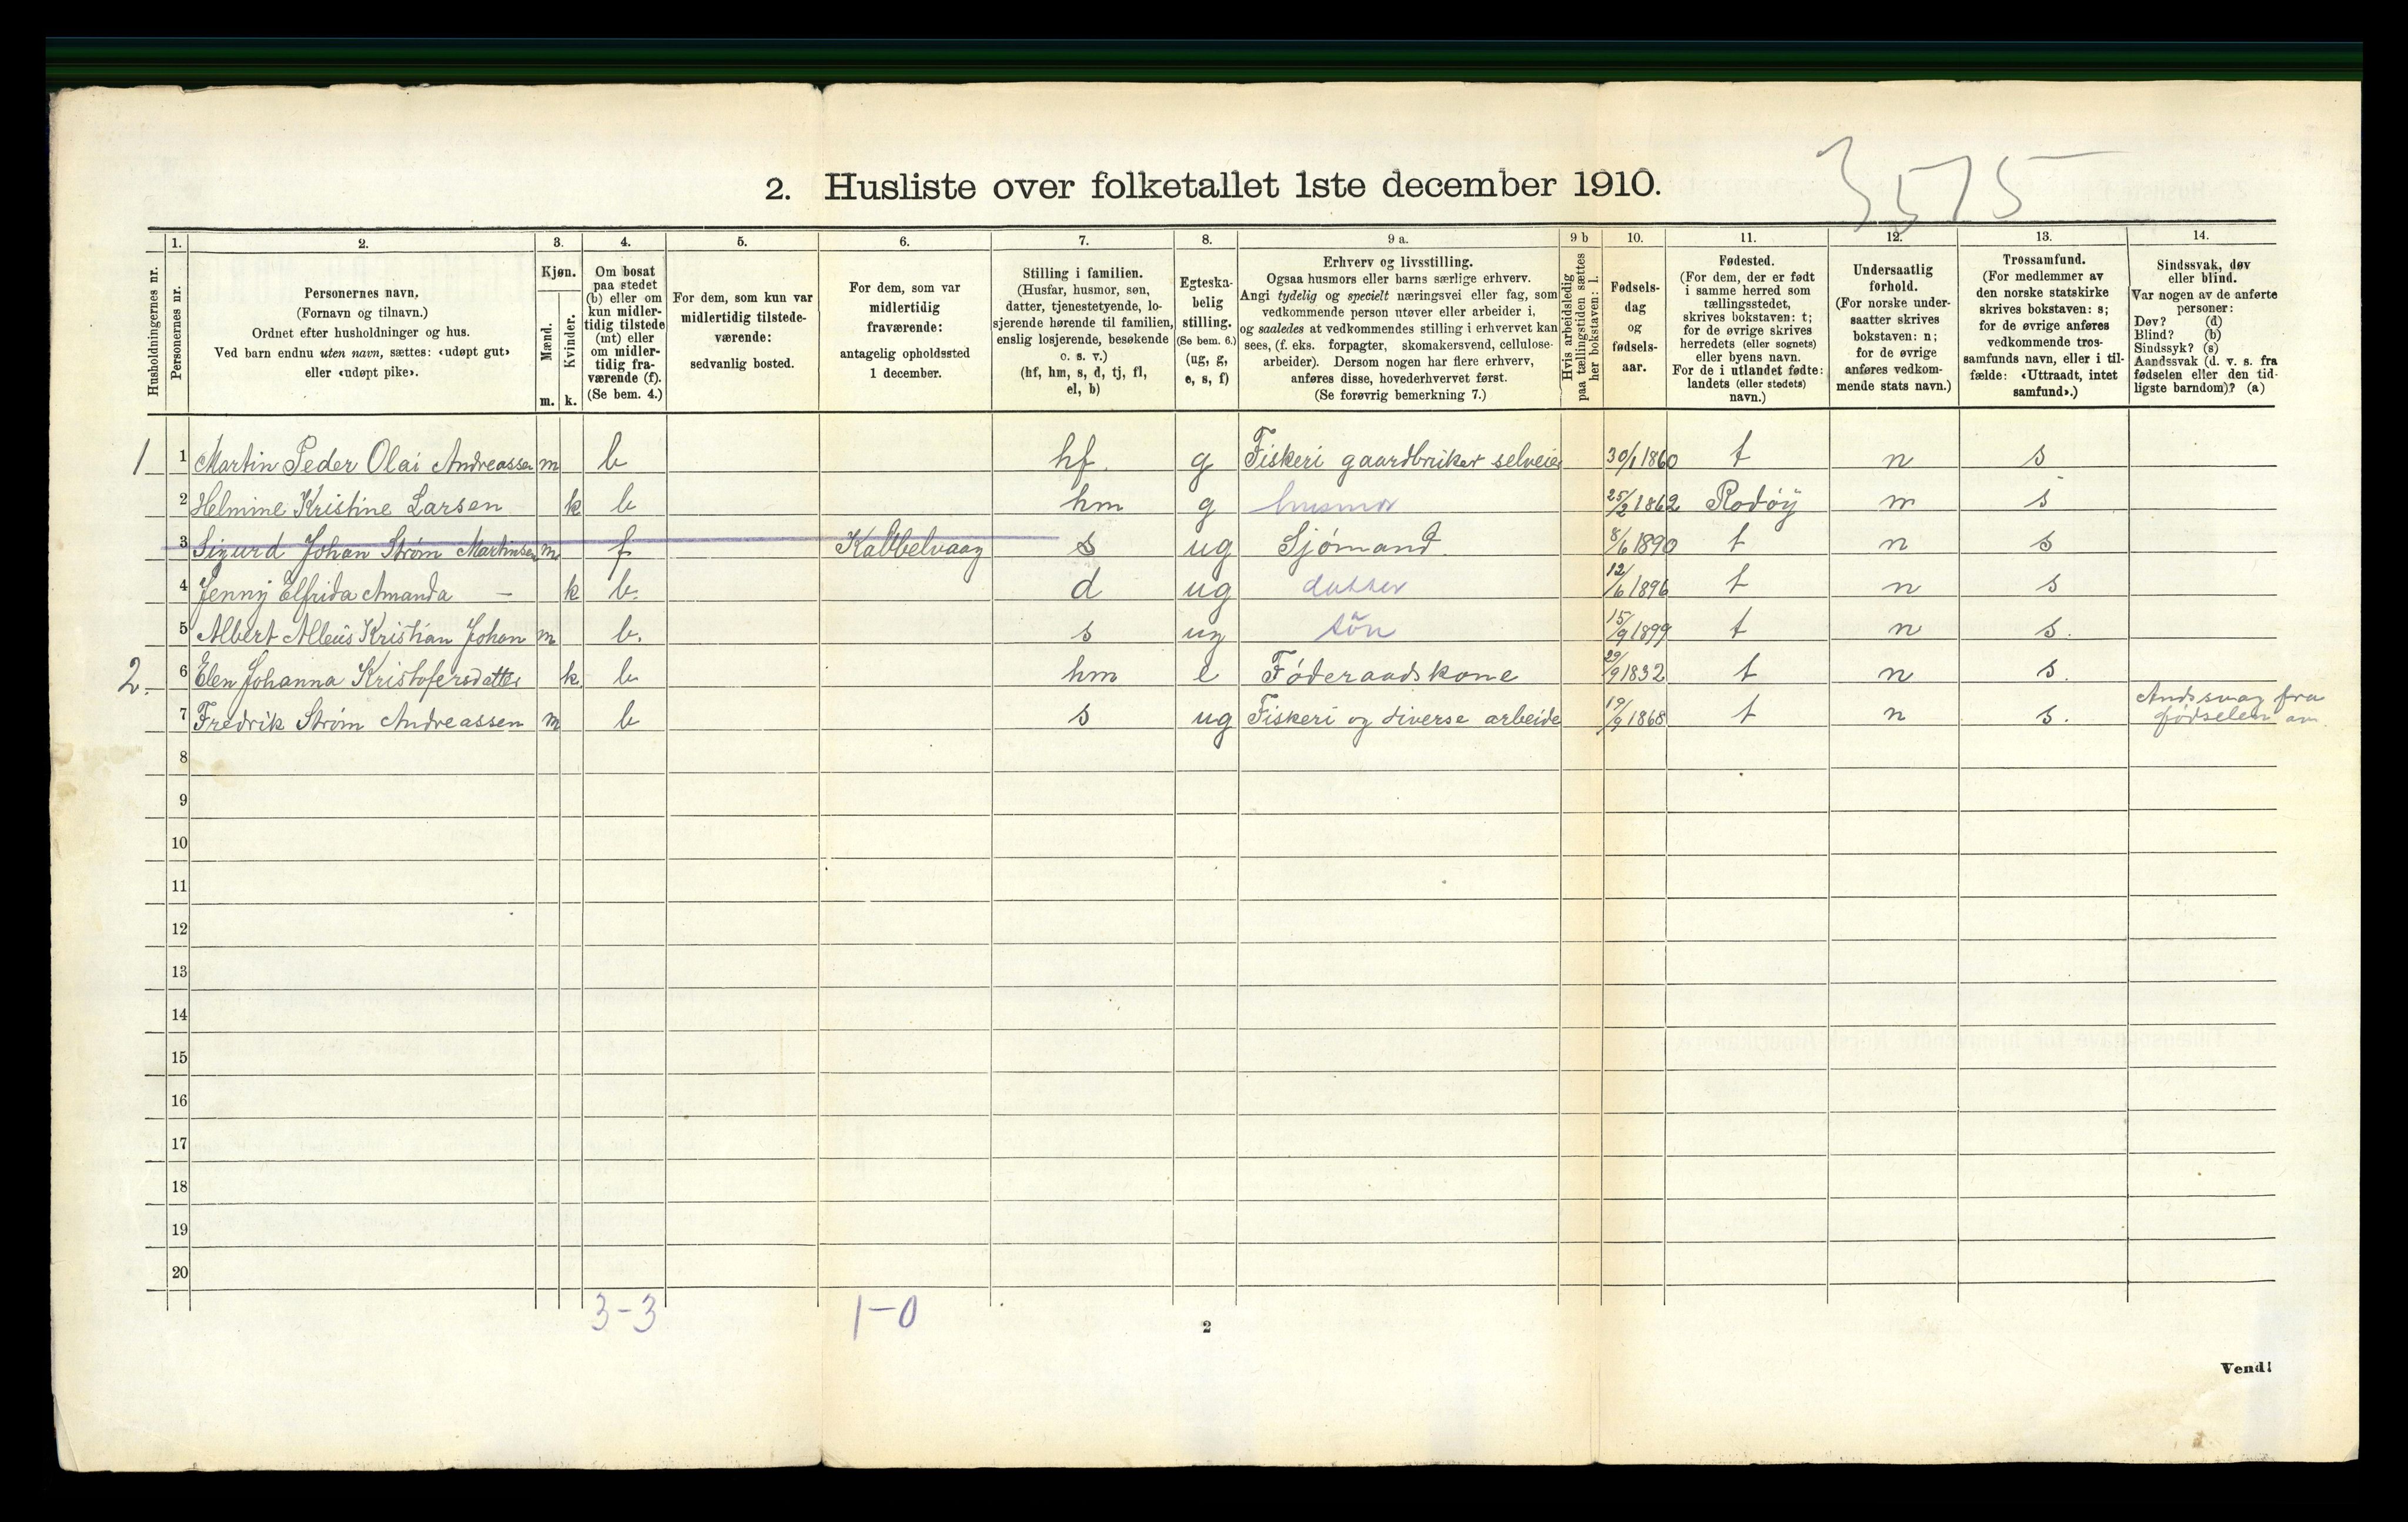 3575
2. Husliste over folketallet 1ste december 1910.
Husholdningernes nr.
1.
Personernes nr.
2.
Personernes navn.
(Fornavn og tilnavn.)
Ordnet efter husholdninger og hus.
Ved barn endnu uten navn, sættes: «udøpt gut»
eller «udøpt pike».
3.
Kjøn.
Mænd.
Kvinder.
m. k.
4.
Om bosat
paa stedet
(b) eller om
kun midler-
tidig tilstede
(mt) eller
om midler-
tidig fra-
værende (f).
(Se bem. 4.)
5.
For dem, som kun var
midlertidig tilstede-
værende:
sedvanlig bosted.
6.
For dem, som var
midlertidig
fraværende:
antagelig opholdssted
1 december.
7.
Stilling i familien.
(Husfar, husmor, søn,
datter, tjenestetyende, lo-
sjerende hørende til familien,
enslig losjerende, besøkende
o. s. v.)
(hf, hm, s, d, tj, fl,
el, b)
8.
Egteska-
belig
stilling.
(Se bem. 6.)
(ug, g,
e, s, f)
9 a.
Erhverv og livsstilling.
Ogsaa husmors eller barns særlige erhverv.
Angi tydelig og specielt næringsvei eller fag, som
vedkommende person utøver eller arbeider i,
og saaledes at vedkommendes stilling i erhvervet kan
sees, (f. eks. forpagter, skomakersvend, cellulose-
arbeider). Dersom nogen har flere erhverv,
anføres disse, hovederhvervet først.
(Se forøvrig bemerkning 7.)
9 b
Hvis arbeidsledig
paa tællingstiden sættes
her bokstaven: l.
10.
Fødsels-
dag
og
fødsels-
aar.
11.
Fødested.
(For dem, der er født
i samme herred som
tællingsstedet,
skrives bokstaven: t;
for de øvrige skrives
herredets (eller sognets)
eller byens navn.
For de i utlandet fødte:
landets (eller stedets)
navn.)
12.
Undersaatlig
forhold.
(For norske under-
saatter skrives
bokstaven: n;
for de øvrige
anføres vedkom-
mende stats navn.)
13.
Trossamfund.
(For medlemmer av
den norske statskirke
skrives bokstaven: s;
for de øvrige anføres
vedkommende tros-
samfunds navn, eller i til-
fælde: «Uttraadt, intet
samfund».)
14.
Sindssvak, døv
eller blind.
Var nogen av de anførte
personer:
Døv? (d)
Blind? (b)
Sindssyk? (s)
Aandssvak (d. v. s. fra
fødselen eller den tid-
ligste barndom)? (a)
1 1 Martin Peder Olai Andreassen m b hf. g Fiskeri gaardbruker selveier 30/1 1860 t n s
2 Helmine Kristine Larsen k b hm g husmor 25/2 1862 Rodøy n s
3 Sigurd Johan Strøm Martinsen m f Kalbelvaag s ug Sjømand 8/6 1890 t n s
4 Jenny Elfrida Amanda — k b. d ug datter 12/6 1896 t n s
5 Albert Alleüs Kristian Johan m b. s ug søn 15/9 1899 t n s.
2. 6 Elen Johanna Kristofersdatter k b hm e Føderaadskone 29/9 1832 t n s.
7 Fredrik Strøm Andreassen m b s ug Fiskeri og diverse arbeide 19/9 1868 t n s. Andssvag fra
fødselen av
8
9
10
11
12
13
14
15
16
17
18
19
20
3-3 1-0
2
Vend!